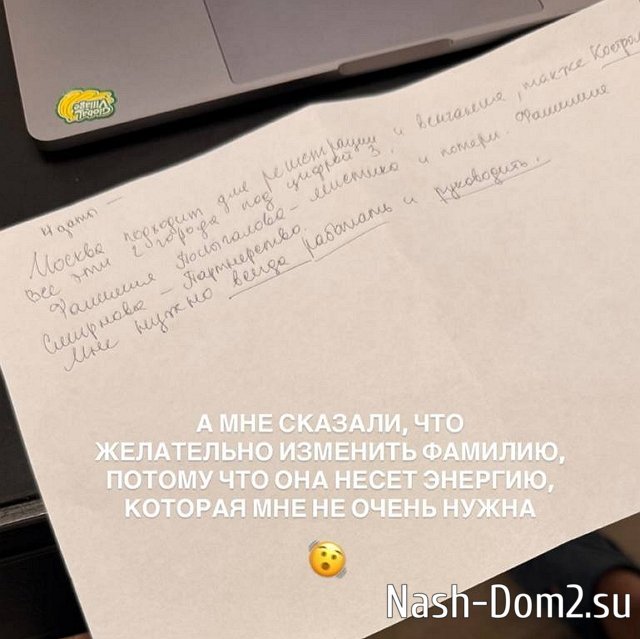 Global
Village
4 даты —
Москва подходит для регистрации и венчания, также Костром
Все эти 2 города под цифрой 3.
Фамилия Посыпалова – мистика и потери. Фамилия
Смирнова – Партнерство.
Мне нужно всегда работать и руководить.
А МНЕ СКАЗАЛИ, ЧТО
ЖЕЛАТЕЛЬНО ИЗМЕНИТЬ ФАМИЛИЮ,
ПОТОМУ ЧТО ОНА НЕСЕТ ЭНЕРГИЮ,
КОТОРАЯ МНЕ НЕ ОЧЕНЬ НУЖНА
Nash-Dom2.su